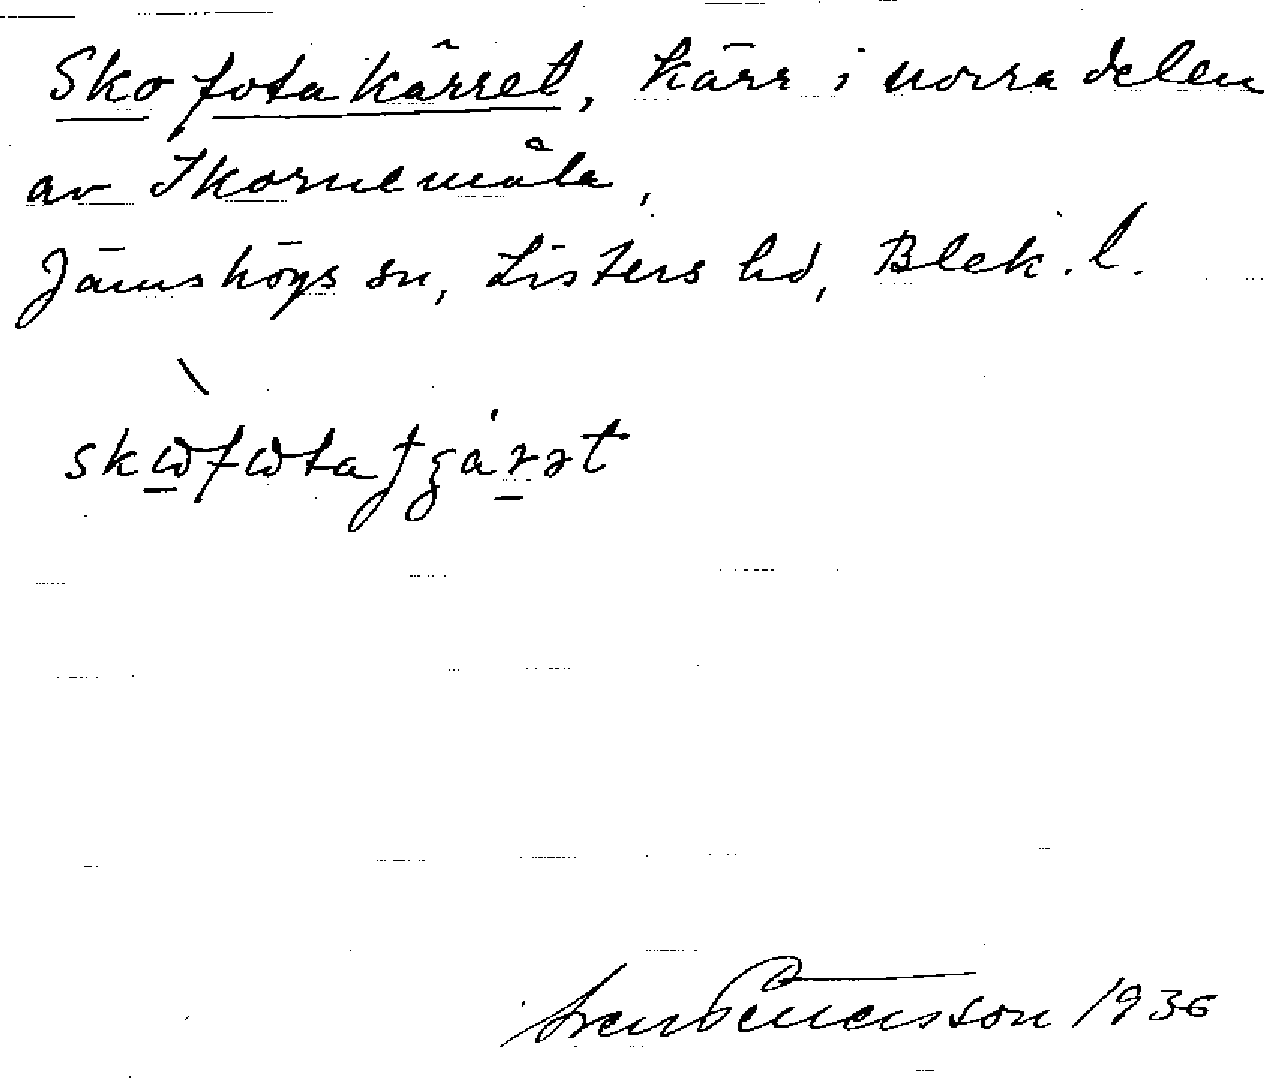 Skofotakärret, Kärr i norra delen
av Ikornemåla,
Jämshögs sn, Listers hd, Blek. l.
Sven Benensson 1936